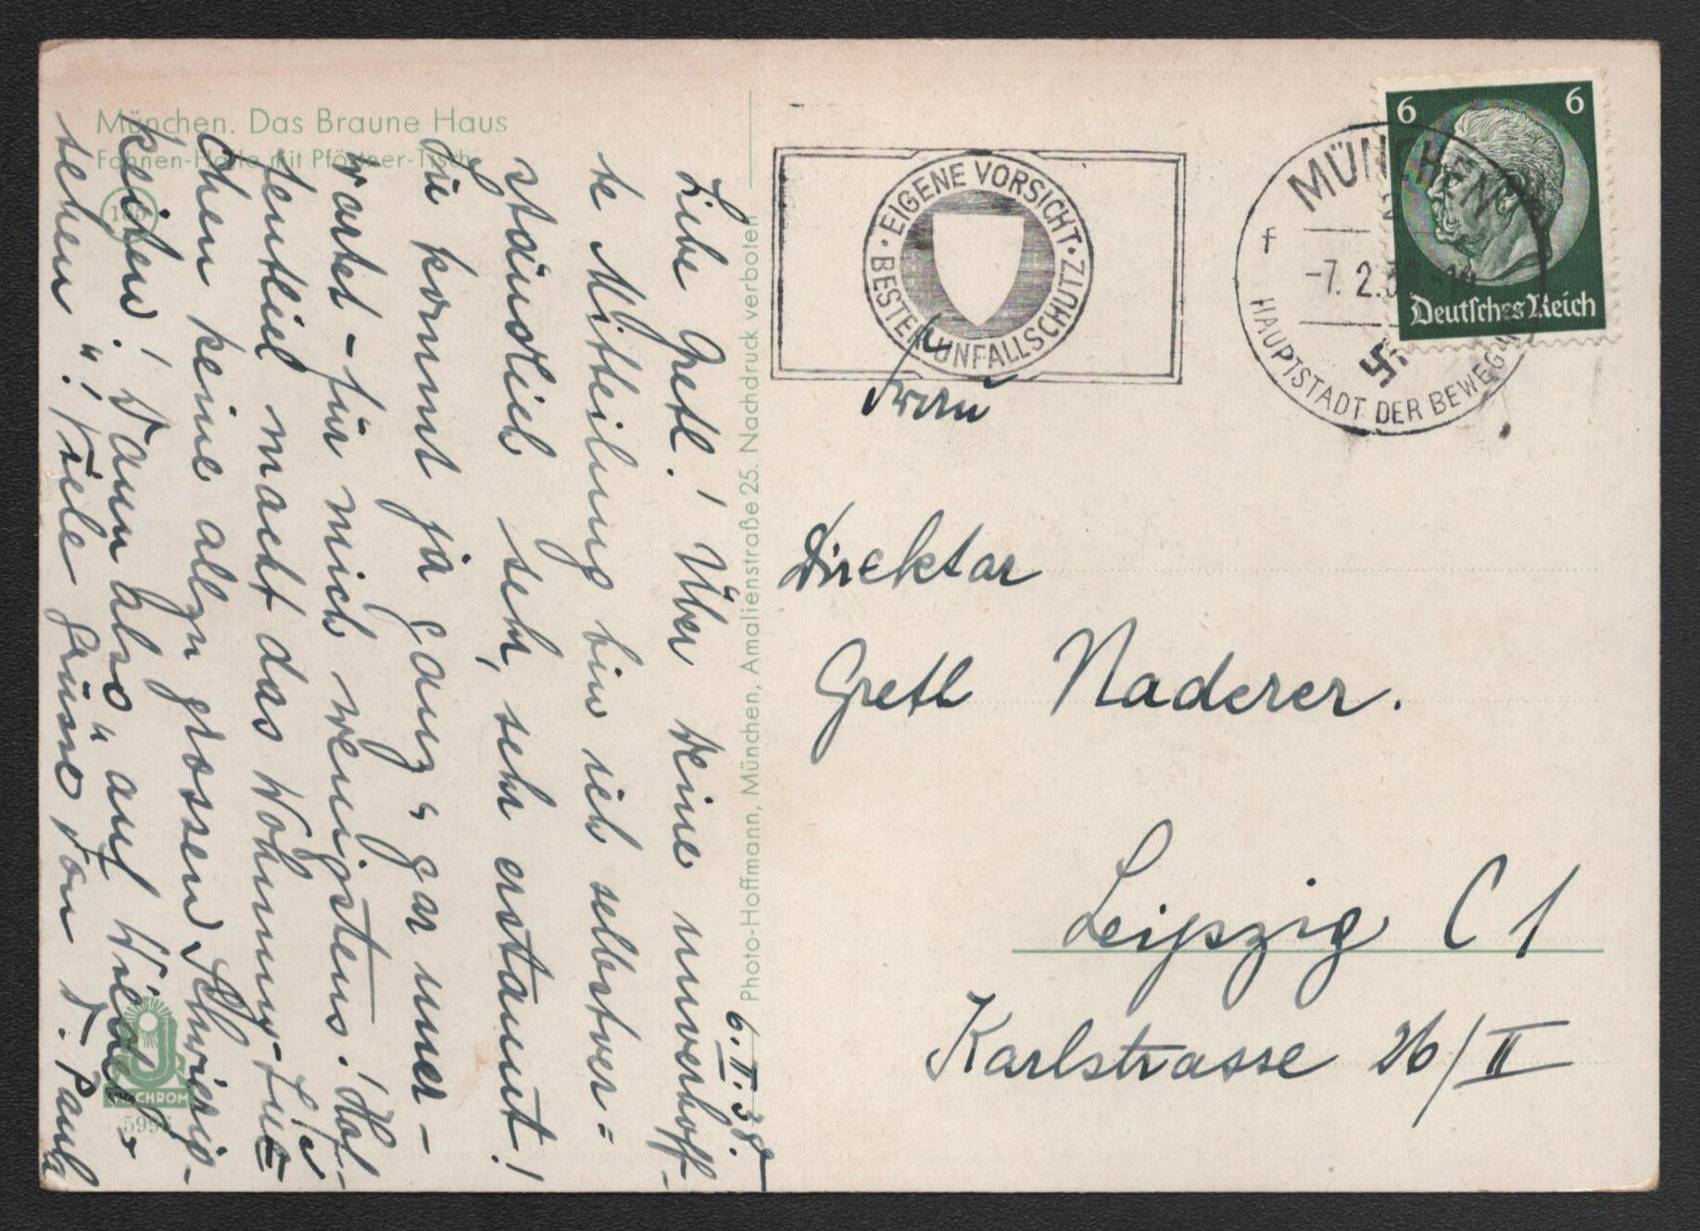 München. Das Braune Haus
Fahnen-Halle mit Pförtner-Tisch
6.II.38.
Liebe Gretl! Über Deine unverhoff-
te Mitteilung bin ich selbstver=
ständlich sehr, sehr erstaunt!
Sie kommt ja ganz, gar uner-
wartet – für mich wenigstens! Hof-
fentlich macht das Wohnung-Su=
chen keine allzu grossen Schwierig-
keiten! Dann also "auf Wieder-
sehen"! Viele Grüsse von D. Paula
Photo-Hoffmann, München, Amalienstraße 25. Nachdruck verboten
CHROM
EIGENE VORSICHT
BESTER UNFALLSCHUTZ
MÜNCHEN
f
-7. 2.
HAUPTSTADT DER BEWEGU
6 6
Deutsches Reich
Frau
Direktor
Gretl Naderer.
Leipzig C 1
Karlstrasse 26/II